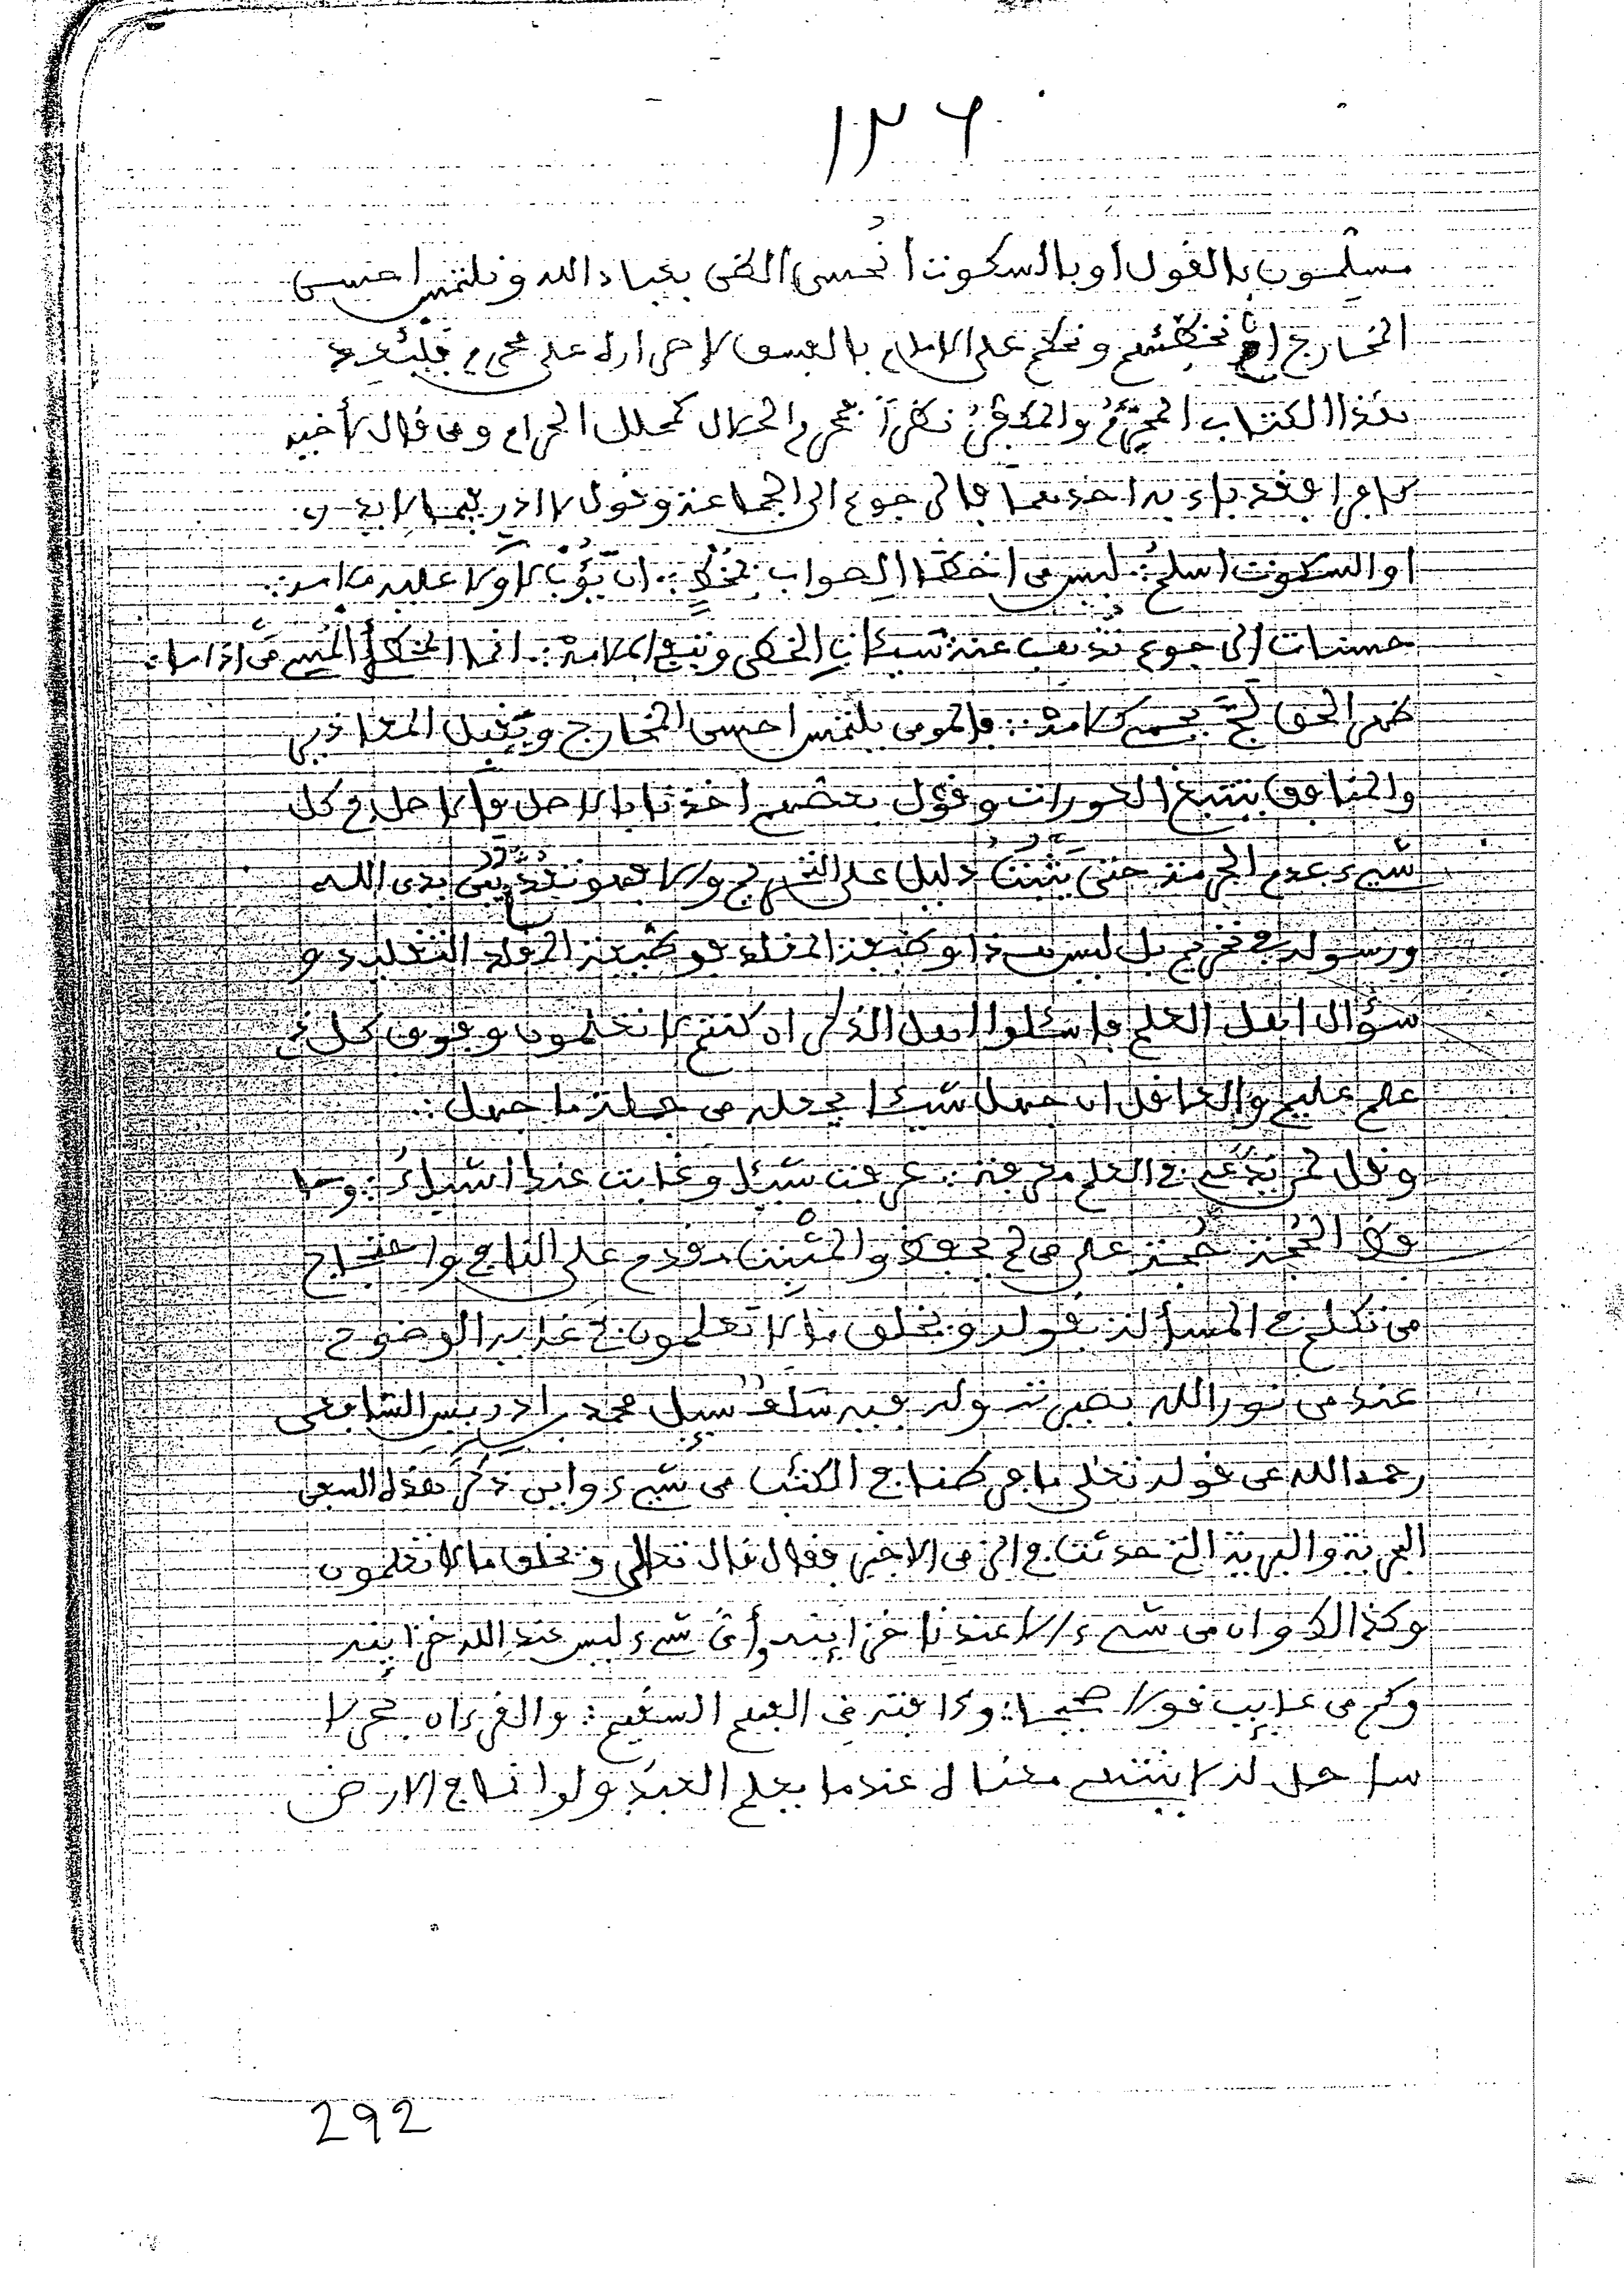 ١٢٦
مسلمون بالقول أو بالسكوت انحسن الظن بعباد الله ونلتمس احسن
المخارج نخطئهم ونحكم على الامام بالفسق لاصراره على محرم فليتعود
هذا الكتاب المجترئ والمكفر نكرا محرم الحلال كمحلل الحرام ومن قال لأخيه
كافرا فقد باء به احدهما فالرجوع الى الجماعة وقول لا ادري فيما لا يدرى
او السكوت اسلم ليس من اخطأ الصواب بمخط ان يؤب لا ولا عليه ملامه
حسنات الرجوع تذهب عنه سيئات الخطى وتنفي الملامه انما المخطئ المسي من اذا ما
ظهر الحق لج يحمي كلامه فالمومن يلتمس احسن المخارج ويقبل المعاذير
والمنافق يتتبع العورات وقول بعضهم اخذنا بالاصل والاصل في كل
شيء عدم الحرمة حتى يثبت دليل على التحريم والا فهو تقدم بين يدي الله
ورسوله في تحريم بل ليس هذا وظيفة المقلد فوظيفة المقلد التقليد و
سؤال اهل العلم فاسئلوا اهل الذكر ان كنتم لا تعلمون وفوق كل ذي
علم عليم والعاقل ان جهل شيئا يجعله من جملة ما جهل
وقل لمن يدعي في العلم معرفة عرفت شيئا وغابت عنك اشياء وما
وكل الحجة حجة على من لم يحفظ والمثبت مقدم على النافي واحتجاج
من تكلم في المسألة بقوله ويخلق ما لا تعلمون في غاية الوضوح
عند من نور الله بصيرته وله فيه سلف سئل محمد بن ادريس الشافعي
رحمه الله عن قوله تعلى ما فرطنا في الكتب من شيء واين ذكر هذه السفن
البحرية والبرية التي حدثت في الزمن الاخير فقال قال تعالى ويخلق ما لا تعلمون
وكذالك وان من شيء الا عندنا خزاينه وأي شيء ليس عند الله خزاينه
وكم من عايب قولا صحيحا وءافته من الفهم السقيم والقرءان بحر لا
ساحل له لا ينتهي معناه عندما يعلم العبد ولو انما في الارض
292